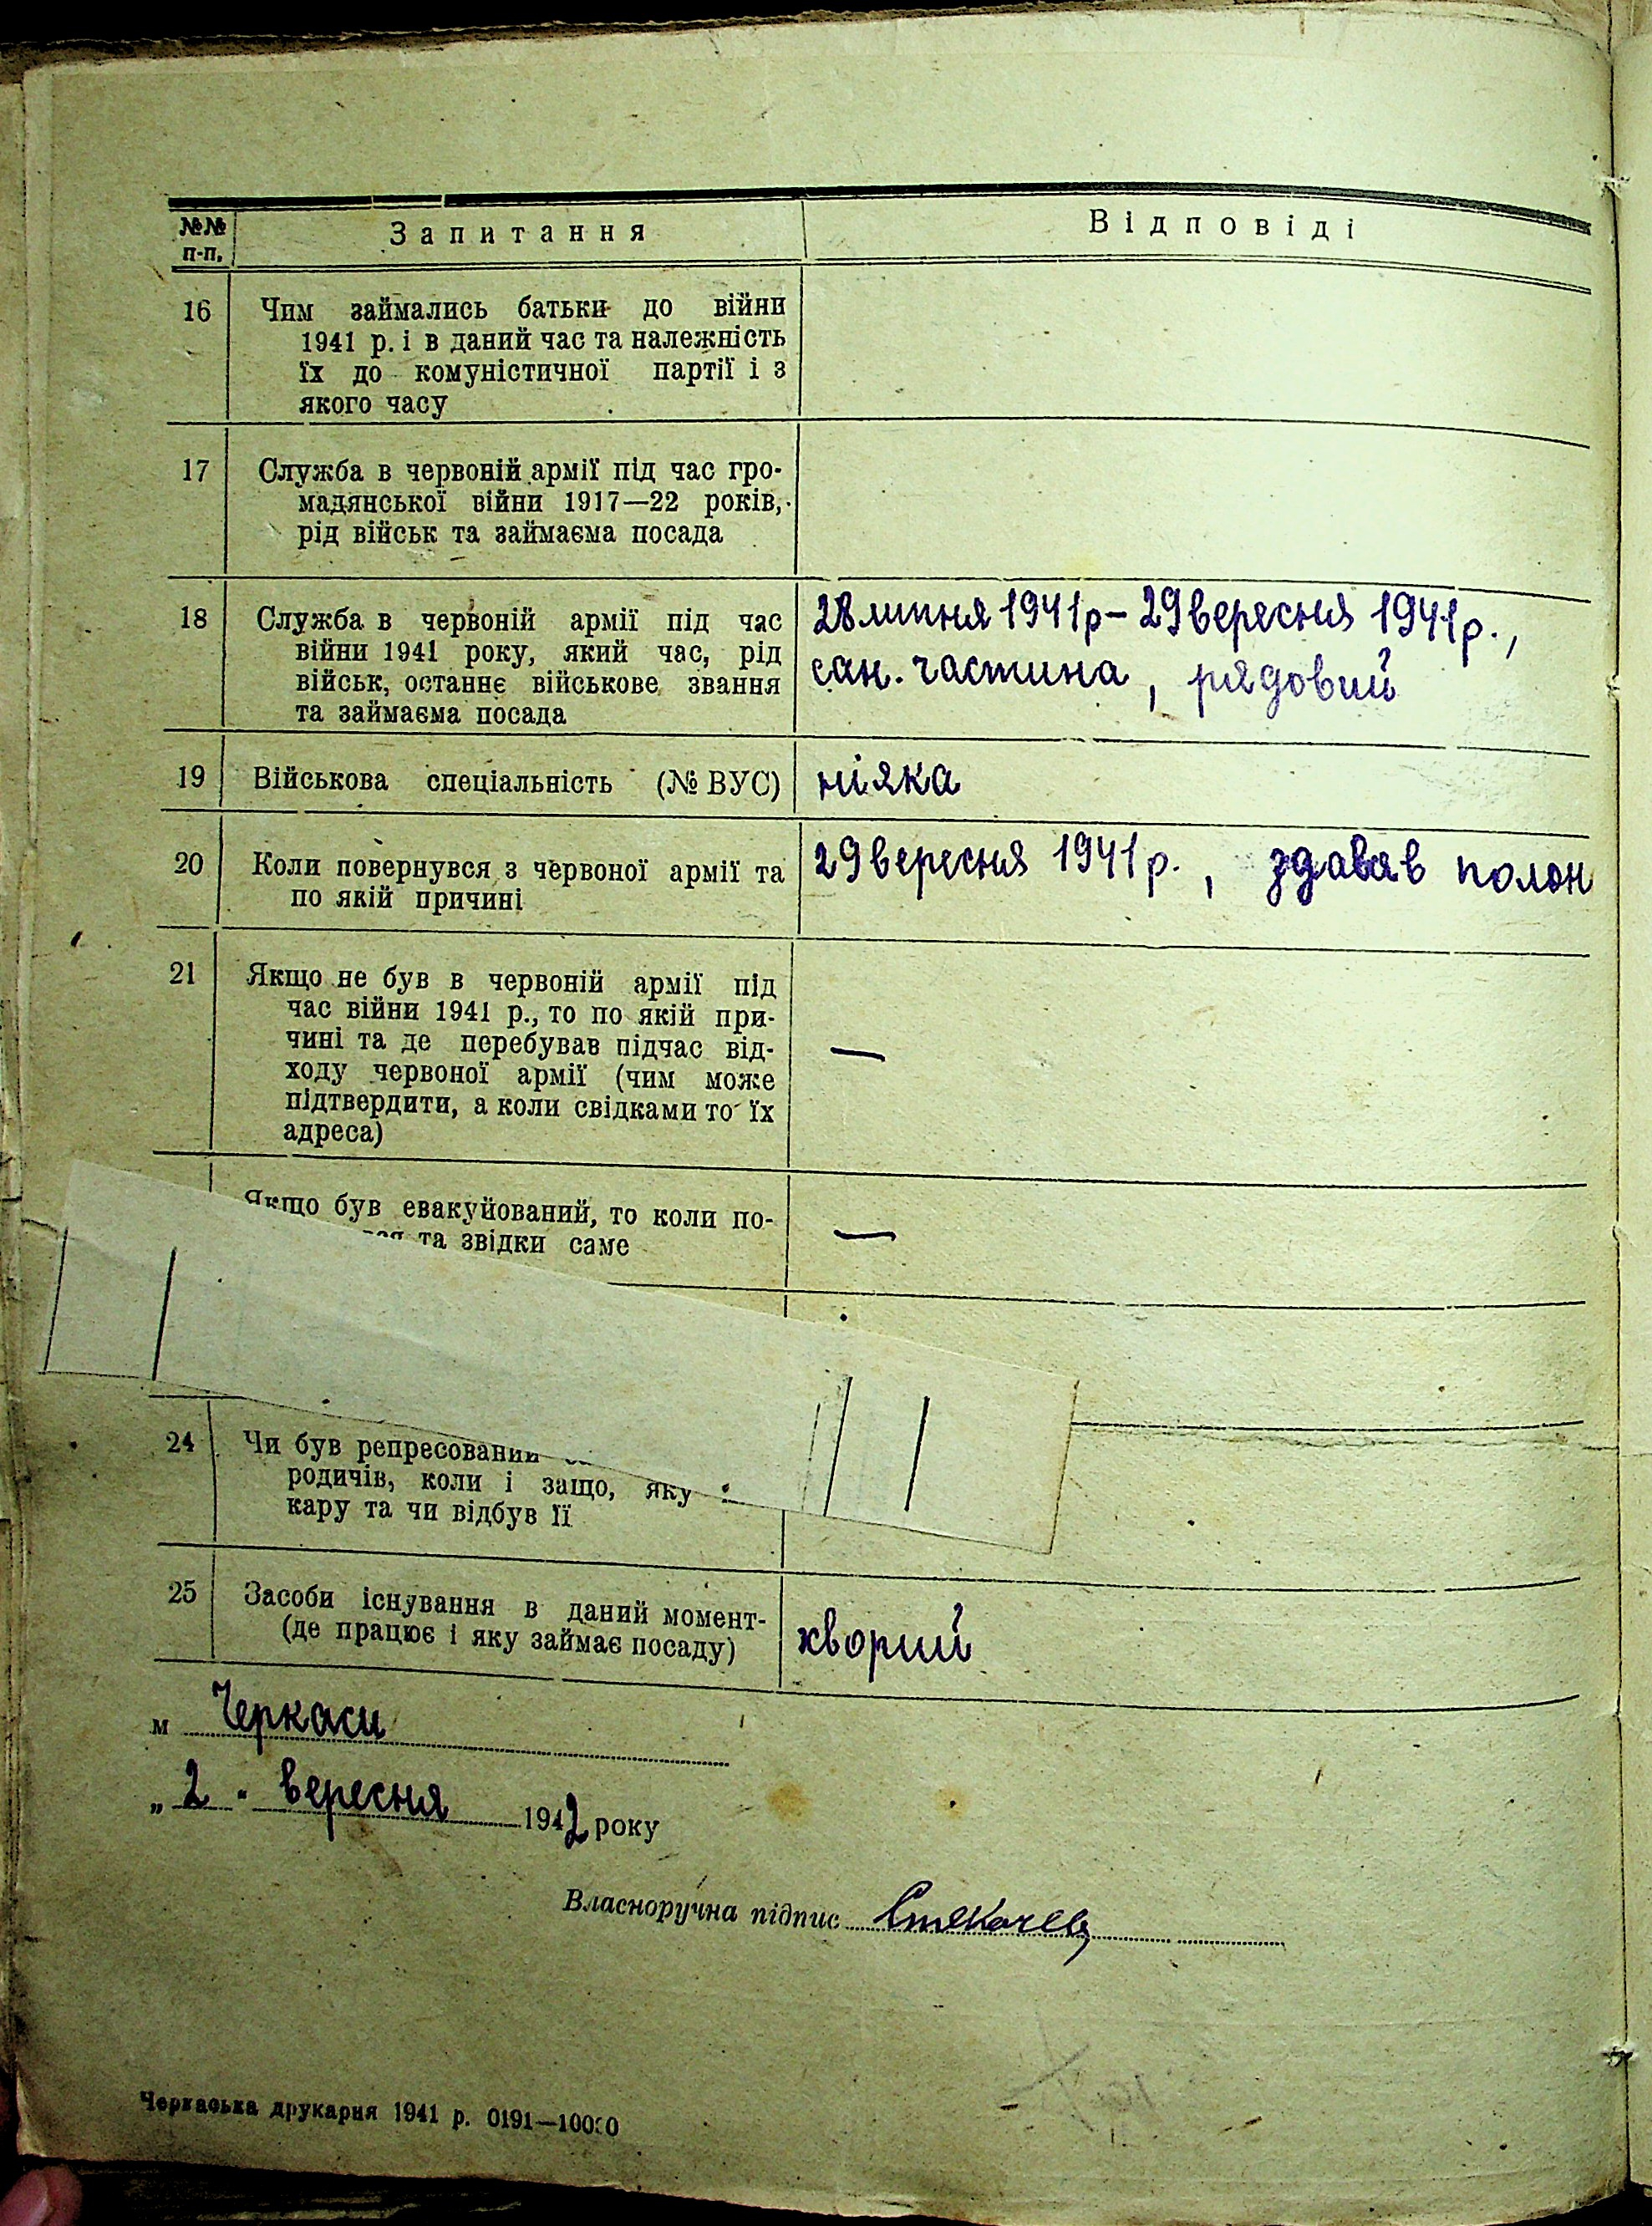 №№
п-п.
Запитання
Відповіді
16
Чим займались батьки до війни
1941 р. і в даний час та належність
їх до комуністичної партії і з
якого часу
17
Служба в червоній армії під час гро-
мадянської війни 1917—22 років,
рід військ та займаєма посада
18
Служба в червоній армії під час
війни 1941 року, який час, рід
військ, останнє військове звання
та займаєма посада
28 липня 1941р – 29 вересня 1941р.,
сан. частина, рядовий
19
Військова спеціальність (№ ВУС)
ніяка
20
Коли повернувся з червоної армії та
по якій причині
29 вересня 1941р., здавав полон
21
Якщо не був в червоній армії під
час війни 1941 р., то по якій при-
чині та де перебував підчас від-
ходу червоної армії (чим може
підтвердити, а коли свідками то їх
адреса)
—
Якщо був евакуйований, то коли по-
та звідки саме
—
24
Чи був репресований
родичів, коли і защо, яку
кару та чи відбув її
25
Засоби існування в даний момент-
(де працює і яку займає посаду)
хворий
м Черкаси
„2" вересня 1942 року
Власноручна підпис
Черкаська друкарня 1941 р. 0191—10000